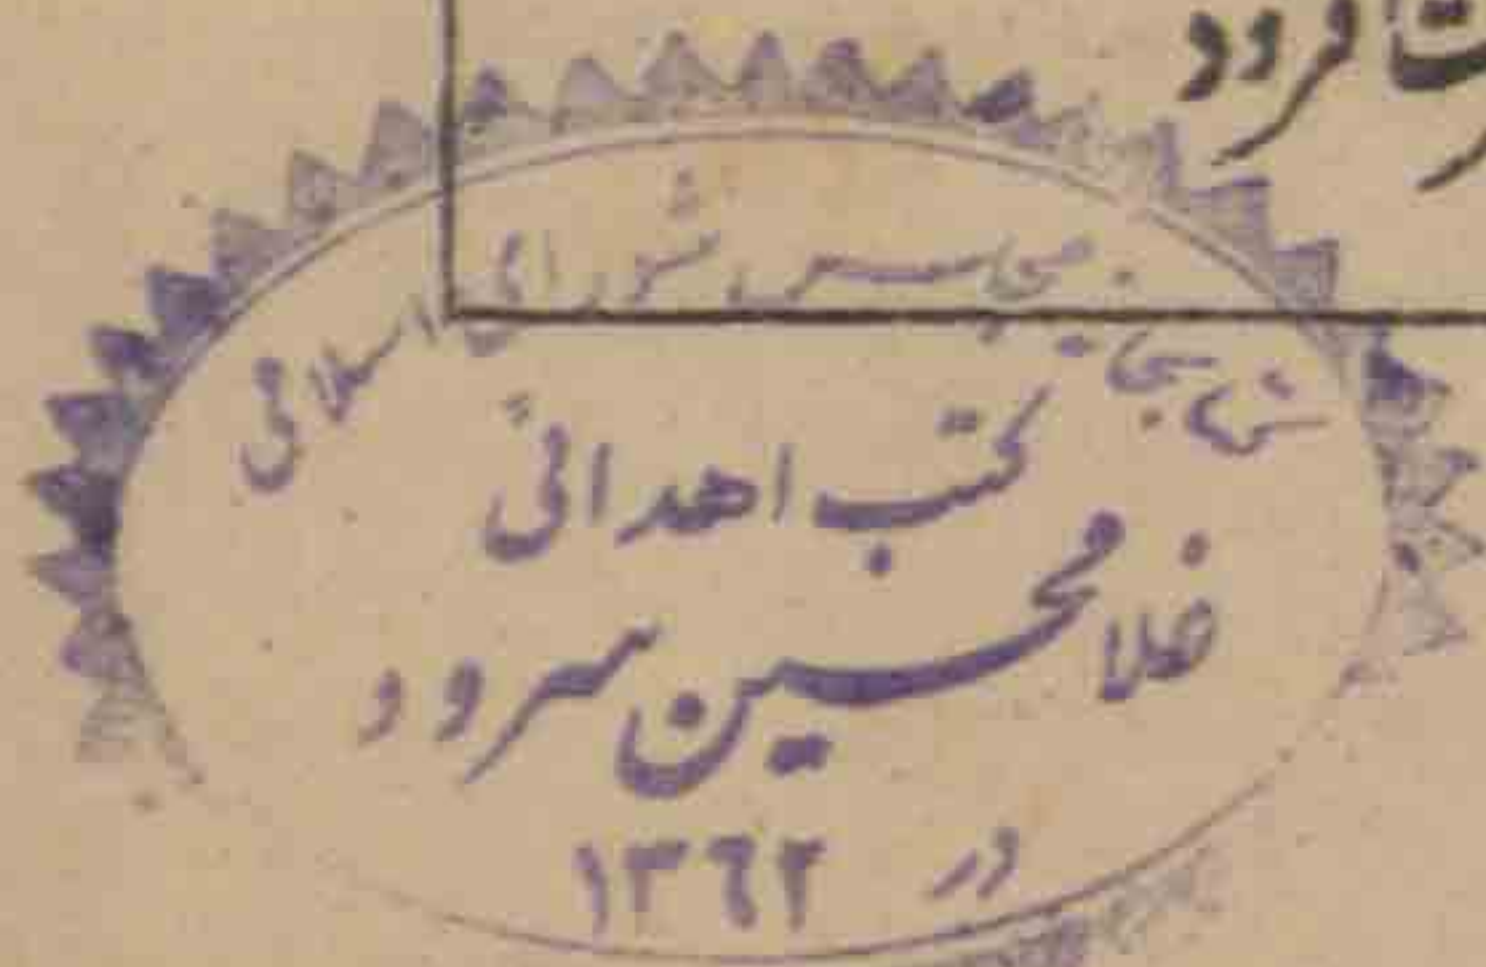 کتابخانه مجلس شورای اسلامی
کتب اهدائی
غلامحسین سرود
در ١٣٦٢